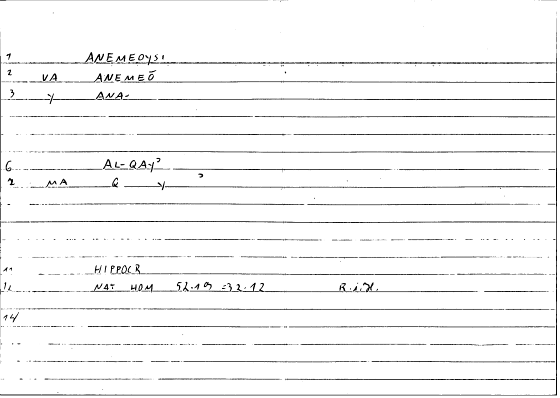 1 ANEMEOYSI
2 VA ANEMEŌ
3 Y ANA-
6 AL-QAY'
7 MA Q Y '
11 HIPPOCR
12 NAT HOM 52.19 =32.12 R.i.H.
14/